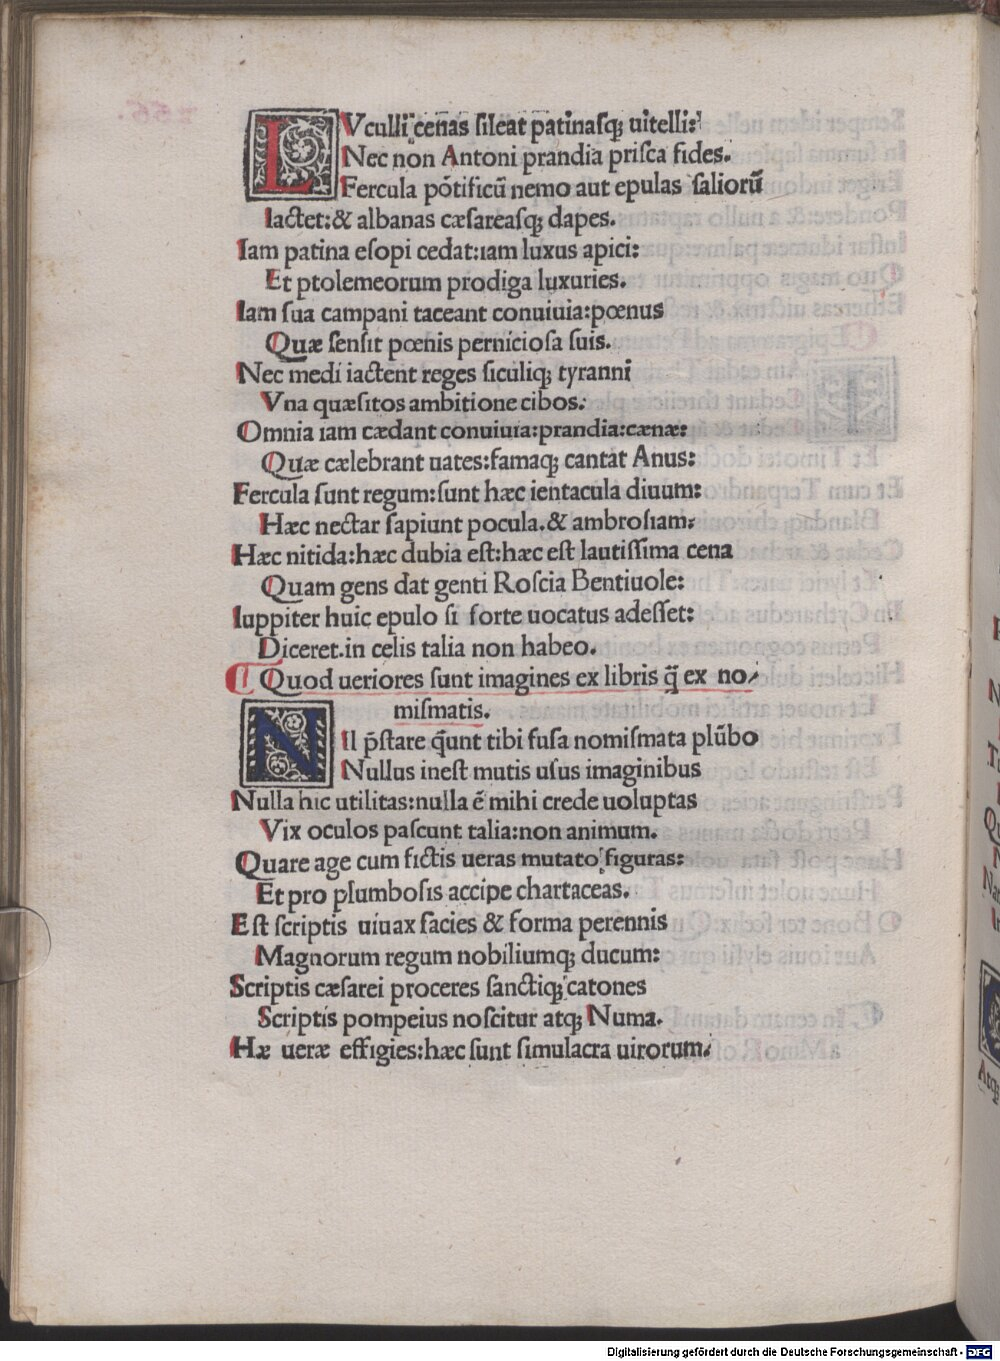 LVculli cenas sileat patinasq; uitelli:
Nec non Antoni prandia prisca fides.
Fercula põtificũ nemo aut epulas saliorũ
Iactet:& albanas cæsareasq; dapes.
Iam patina esopi cedat:iam luxus apici:
Et ptolemeorum prodiga luxuries.
Iam sua campani taceant conuiuia:pœnus
Quæ sensit pœnis perniciosa suis.
Nec medi iactent reges siculiq; tyranni
Vna quæsitos ambitione cibos:
Omnia iam cædant conuiuia:prandia:cænæ:
Quæ cælebrant uates:famaq; cantat Anus:
Fercula sunt regum:sunt hæc ientacula diuum:
Hæc nectar sapiunt pocula.& ambrosiam:
Hæc nitida:hæc dubia est:hæc est lautissima cena
Quam gens dat genti Roscia Bentiuole:
Iuppiter huic epulo si forte uocatus adesset:
Diceret.in celis talia non habeo.
Quod ueriores sunt imagines ex libris q̃ ex no-
mismatis.
NIl p̃stare q̃unt tibi fusa nomismata plũbo
Nullus inest mutis usus imaginibus
Nulla hic utilitas:nulla ẽ mihi crede uoluptas
Vix oculos pascunt talia:non animum.
Quare age cum fictis ueras mutato figuras:
Et pro plumbosis accipe chartaceas.
Est scriptis uiuax facies & forma perennis
Magnorum regum nobiliumq; ducum:
Scriptis cæsarei proceres sanctiq; catones
Scriptis pompeius noscitur atq; Numa.
Hæ ueræ effigies:hæc sunt simulacra uirorum:
Digitalisierung gefördert durch die Deutsche Forschungsgemeinschaft - DFG